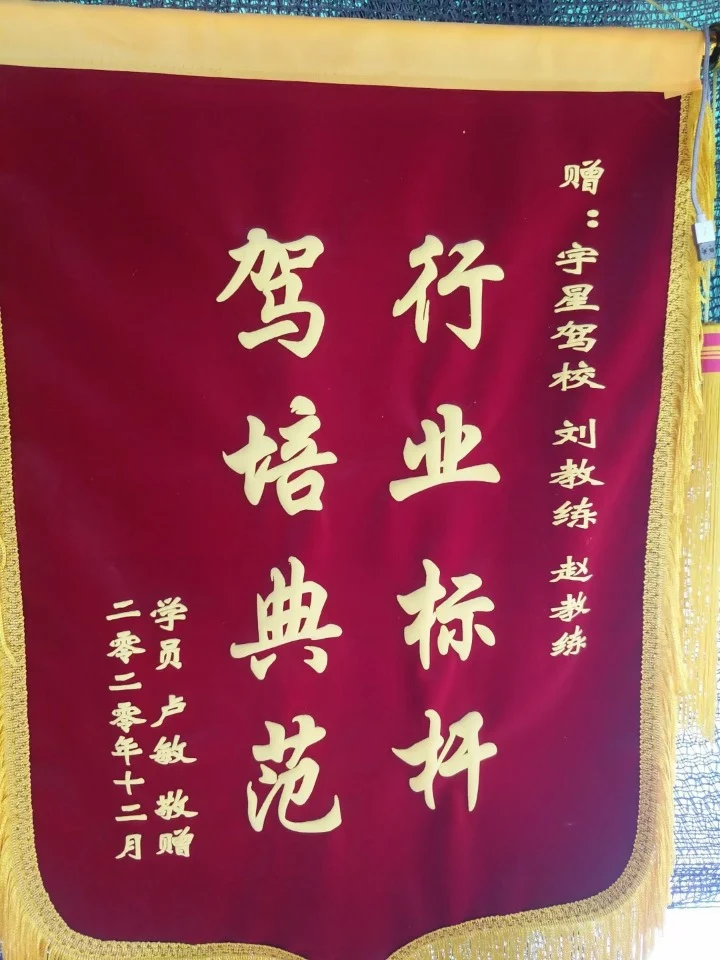 赠：宇星驾校 刘教练 赵教练
行业标杆
驾培典范
学员 卢敏 敬赠
二零二零年十二月